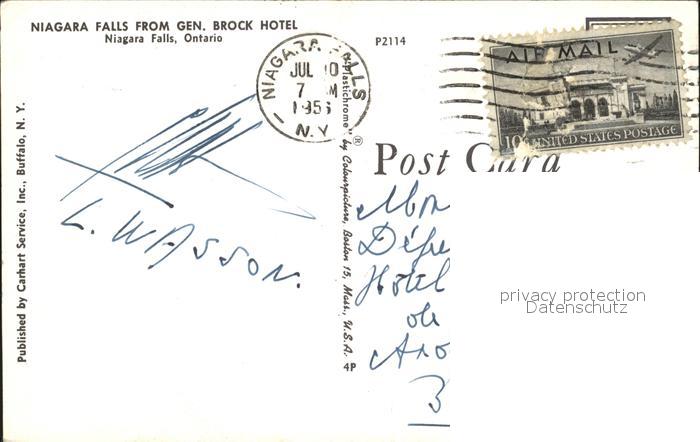 NIAGARA FALLS FROM GEN. BROCK HOTEL
Niagara Falls, Ontario
P2114
NIAGARA FALLS
JUL 10
7 M
1956
N.Y.
AIR MAIL
10¢ UNITED STATES POSTAGE
Post Card
Published by Carhart Service, Inc., Buffalo, N. Y.
"Plastichrome" ® by Colourpicture, Boston 15, Mass., U.S.A. 4P
L. WASSON.
Hôtel
de
privacy protection
Datenschutz